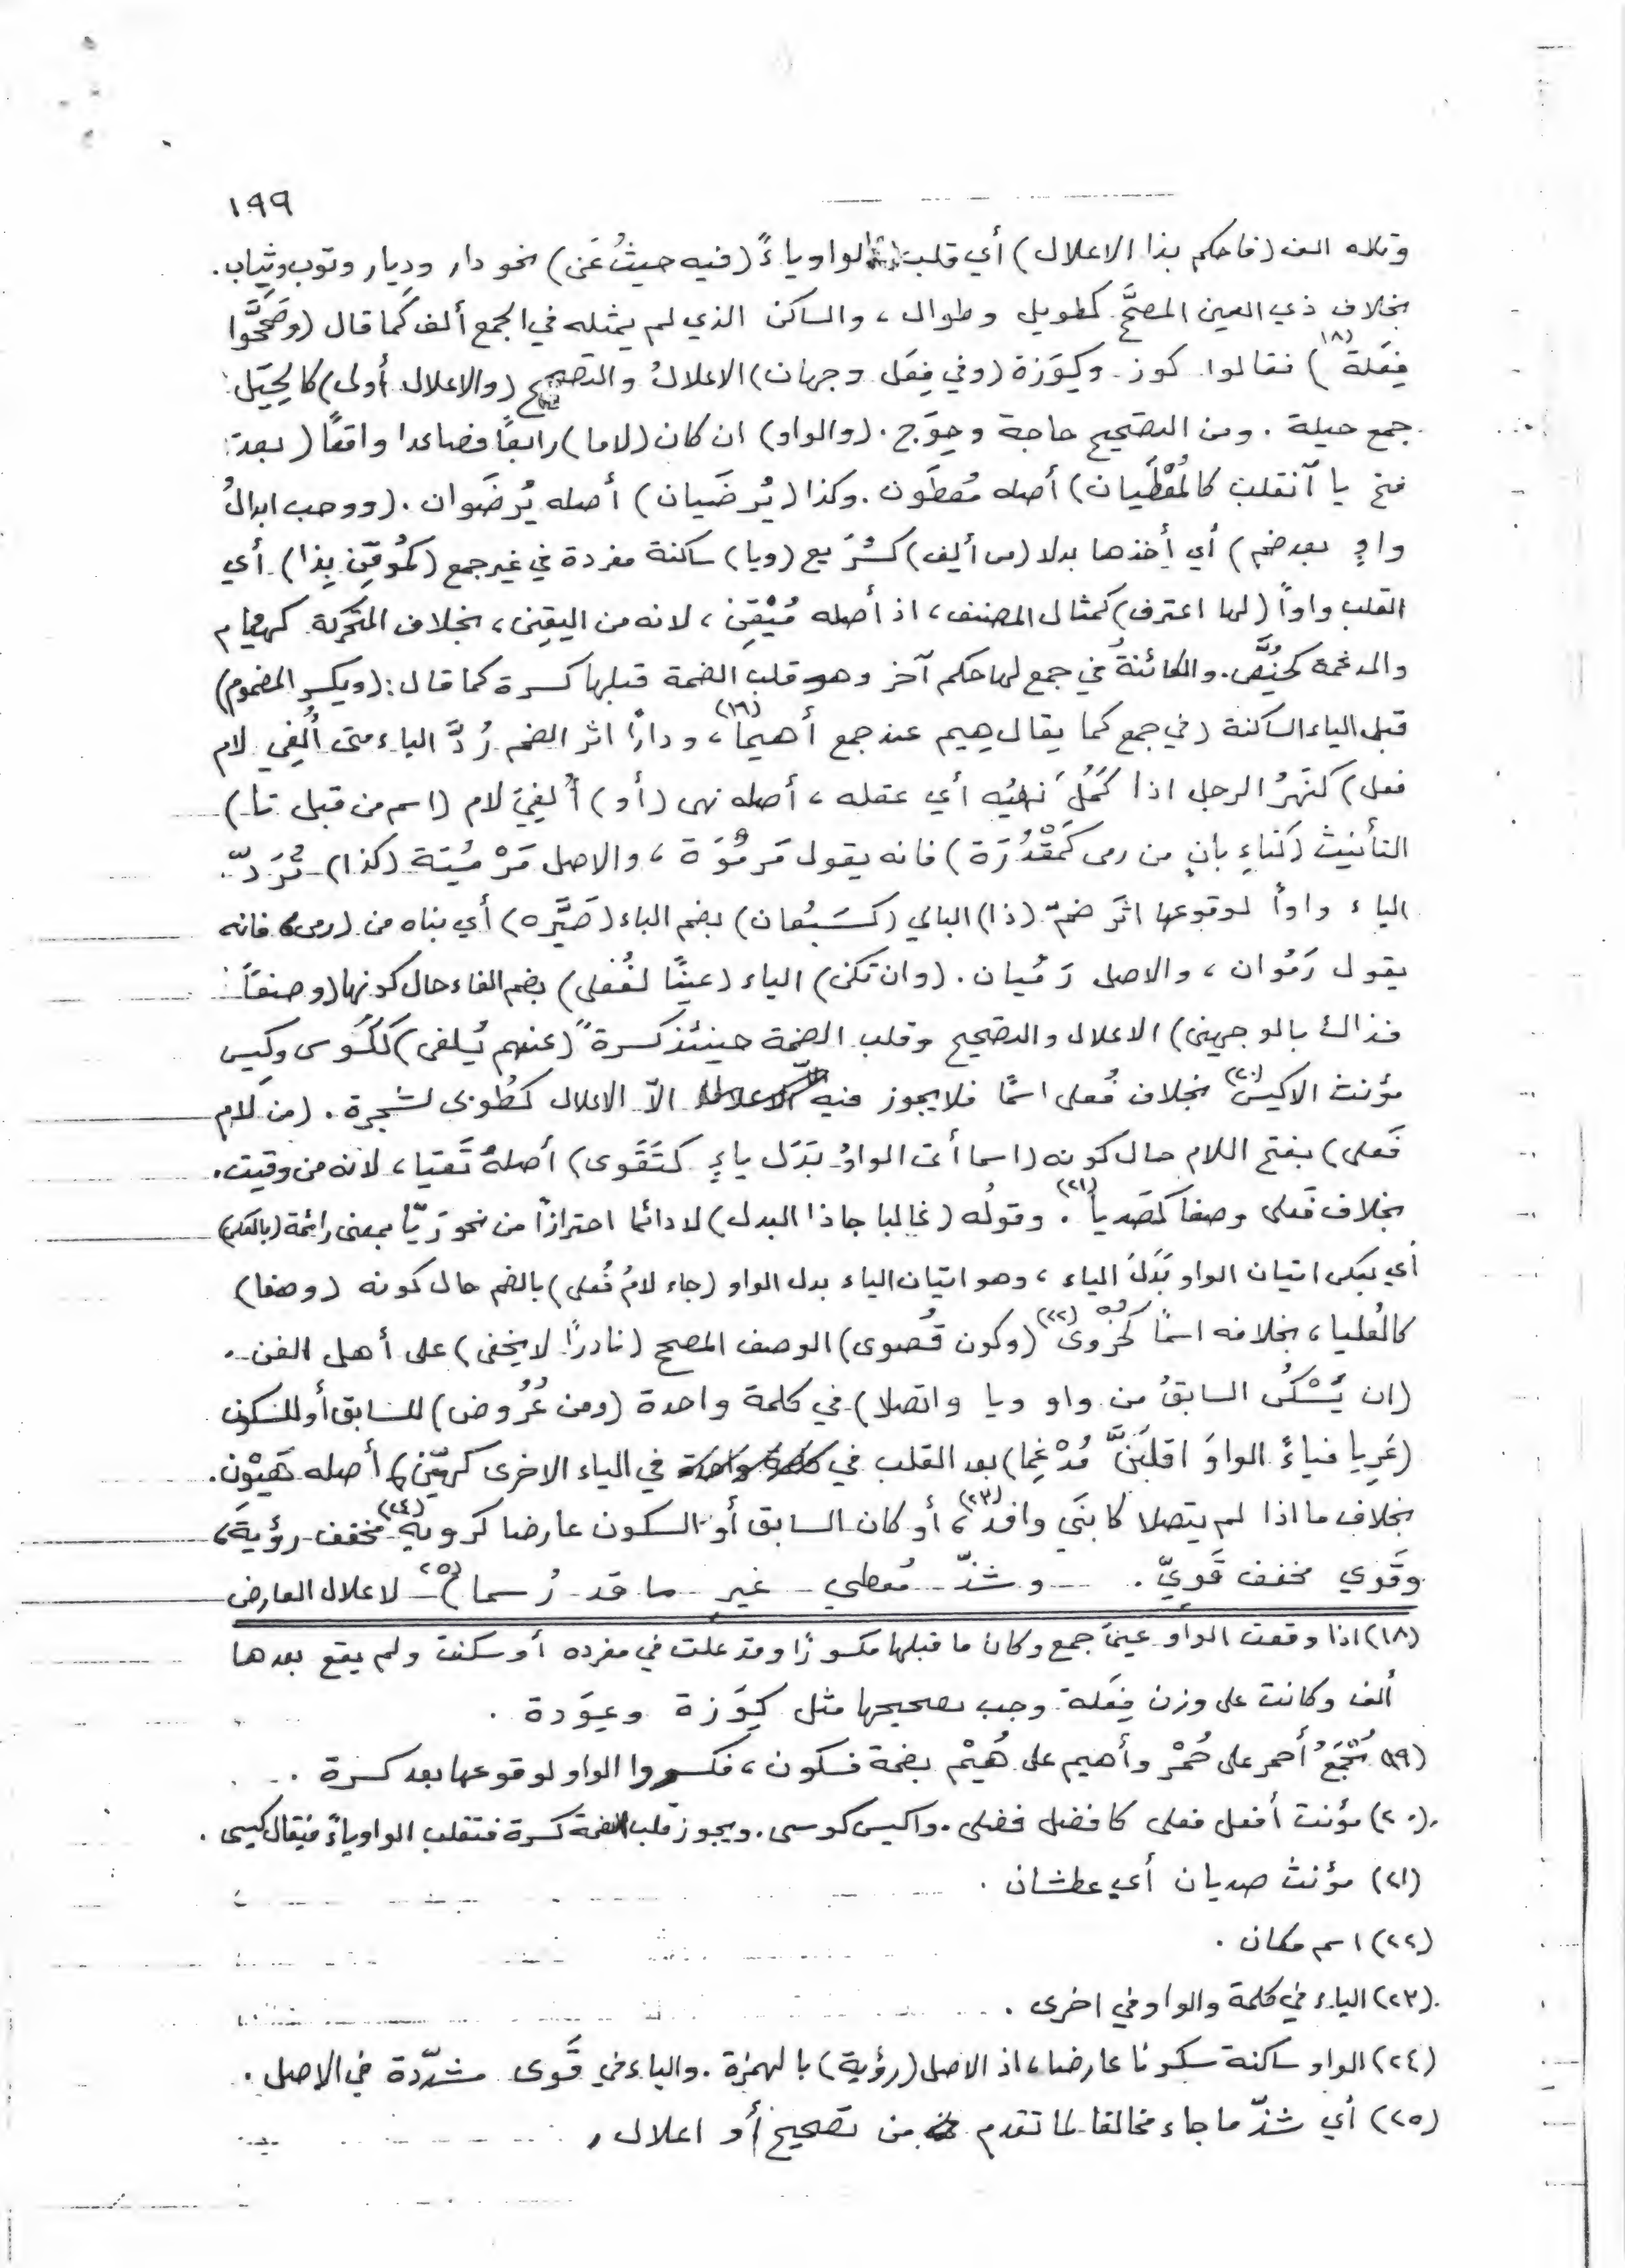 ١٩٩
وتلاه الف (فاحكم بذا الاعلال) أي قلب الواو ياءً (فيه حيثُ عَن) نحو دار وديار وثوب وثِياب.
بخلاف ذي العين المصحَّ كطويل وطوال ، والساكن الذي لم يمثله في الجمع ألف كما قال (وصَحَّحُوا
فِعَلة (١٨) ) فقالوا كوز وكِوَزة (وفي فِعَل وجهان) الاعلالُ والتصحيح (والاعلال أولى) كالحِيَل
جمع حيلة . ومن التصحيح حاجة وحِوَج . (والواو) ان كان (لاما) رابعاً فصاعدا واقعًا (بعد
فتح يا آنقلب كالمُعْطَيان) أصله مُعطَوان . وكذا (يُرضَيان) أصله يُرضَوان . (ووجب ابدالُ
واوٍ بعد ضم) أي أخذها بدلا (من ألِف) كشُرَيع (ويا) ساكنة مفردة في غير جمع (كمُوقِن بِذا) أي
القلب واواً (لها اعترف) كمثال المصنف ، اذ أصله مُيْقِن ، لانه من اليقين ، بخلاف المتحركة كهيام
والمدغمة كحُيَّض . والكائنةُ في جمع لها حكم آخر وهو قلب الضمة قبلها كسرة كما قال : (ويكسر المضموم)
قبل الياء الساكنة (في جمع كما يقال هِيم عند جمع أهيما (١٩) ، وداوًا اثر الضم رُدَّ الياء متى أُلفِي لام
فعل) كنَهُرَ الرجل اذا كَمُلَ نَهيُه أي عقله ، أصله نهى (أو) أُلفِيَ لام (اسم من قبل تا)
التأنيث (كتاءِ بانٍ مِن رمى كَمَقْدُرَة) فانه يقول مَرمُوَة ، والاصل مَرْمُيَة (كذا) تُرَدّ
الياء واواً لوقوعها اثَر ضمّ (ذا) البالي (كسَبُعان) بضم الباء (صَيَّره) أي بناه من (رمى) فانه
يقول رَمُوان ، والاصل رَمُيان . (وان تكن) الياء (عينًا لفُعلى) بضم الفاء حال كونها (وصفَاً
فذاك بالوجهين) الاعلال والتصحيح وقلب الضمة حينئذ كسرةً (عنهم يُلفى) ككُوسى وكِيسى
مؤنث الاكيس (٢٠) بخلاف فُعلى اسمًا فلا يجوز فيه الاّ الاعلال كطُوبى لشجرة . (من لام
فَعلى) بفتح اللام حال كونه (اسما أتى الواوُ بَدَل ياءٍ كتَقوى) أصلهُ تَقيا ، لانه من وقيت .
بخلاف فَعلى وصفا كصَديا (٢١) . وقولُه (غالبا جا ذا البدل) لا دائما احترازاً من نحو رَيّا بمعنى رائحة (بالعكس)
أي بعكس اتيان الواو بَدَلَ الياء ، وهو اتيان الياء بدل الواو (جاء لامُ فُعلى) بالضم حال كونه (وصفا)
كالعُليا ، بخلافه اسمًا كحُزوى (٢٢) (وكون قُصوى) الوصف المصحح (نادرًا لا يخفى) على أهل الفن .
(ان يَسْكُن السابقُ من واو ويا واتصلا) في كلمة واحدة (ومن عُرُوض) للسابق أو للسكون
(عَرِيا فياءً الواوَ اقلبَنَّ مُدْغِما) بعد القلب في في الياء الاخرى كهيّن أصله هَيْوِن .
بخلاف ما اذا لم يتصلا كابنَي وافد (٢٣) ، أو كان السابق أو السكون عارضا كرويةٍ (٢٤) مخفف رؤيةَ ،
وقَوي مخفف قَويّ . (وشذّ مُعطي غير ما قد رُسما (٢٥)) لاعلال العارض
(١٨) اذا وقعت الواو عينَ جمع وكان ما قبلها مكسورًا وقد علت في مفرده أو سكنت ولم يقع بعدها
ألف وكانت على وزن فِعَلة وجب تصحيحها مثل كِوَزة وعِوَدة .
(١٩) يُجْمَعُ أحمر على حُمْر وأهيم على هُيْم بضمة فسكون ، فكسروا الواو لوقوعها بعد كسرة .
(٢٠) مؤنث أفعل فعلى كافضل فضلى . واكيس كوسى . ويجوز قلب الضمة كسرة فتقلب الواو ياءً فيقال كيسى .
(٢١) مؤنث صديان أي عطشان .
(٢٢) اسم مكان .
(٢٣) الياء في كلمة والواو في اخرى .
(٢٤) الواو ساكنة سكونا عارضا ، اذ الاصل (رؤية) بالهمزة . والياء في قَوى مشدّدة في الاصل .
(٢٥) أي شذّ ما جاء مخالفا لما تقدم من تصحيح أو اعلال .